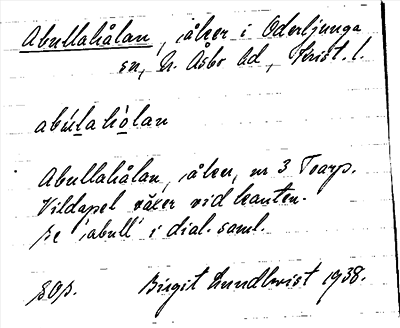 Abullahålan, åker i Oderljunga
sn, N. Åsbo hd, Krist. l.
abúlahólan
Abullahålan, åker, nr 3 Toarp.
Vildapel växer vid kanten.
se 'abull' i dial. saml.
Birgit Lundkvist 1938.